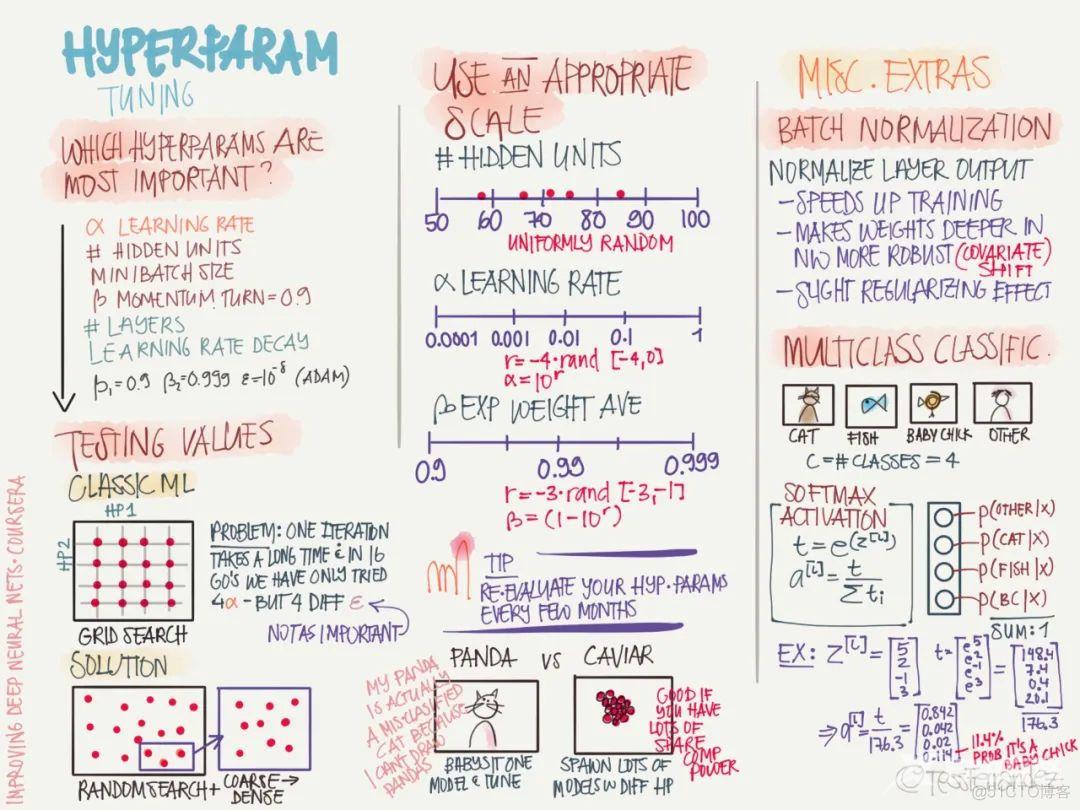 HYPERPARAM
TUNING
WHICH HYPERPARAMS ARE
MOST IMPORTANT?
α LEARNING RATE
# HIDDEN UNITS
MINIBATCH SIZE
β MOMENTUM TURN = 0.9
# LAYERS
LEARNING RATE DECAY
β₁=0.9 β₂=0.999 ε=10⁻⁸ (ADAM)
TESTING VALUES
CLASSIC ML
HP1
HP2
GRID SEARCH
PROBLEM: ONE ITERATION
TAKES A LONG TIME & IN 16
GO'S WE HAVE ONLY TRIED
4α - BUT 4 DIFF ε
NOT AS IMPORTANT
SOLUTION
RANDOM SEARCH +
COARSE →
DENSE
IMPROVING DEEP NEURAL NETS · COURSERA
USE AN APPROPRIATE
SCALE
# HIDDEN UNITS
50 60 70 80 90 100
UNIFORMLY RANDOM
α LEARNING RATE
0.0001 0.001 0.01 0.1 1
r=-4·rand [-4,0]
α=10ʳ
β EXP WEIGHT AVE
0.9 0.99 0.999
r=-3·rand [-3,-1]
β=(1-10ʳ)
TIP
RE-EVALUATE YOUR HYP.PARAMS
EVERY FEW MONTHS
PANDA VS CAVIAR
MY PANDA
IS ACTUALLY
A MISCLASSIFIED
CAT BECAUSE
I CANT DRAW
PANDAS
BABYSIT ONE
MODEL & TUNE
GOOD IF
YOU HAVE
LOTS OF
SHARE
COMP
POWER
SPAWN LOTS OF
MODELS W DIFF HP
MISC. EXTRAS
BATCH NORMALIZATION
NORMALIZE LAYER OUTPUT
- SPEEDS UP TRAINING
- MAKES WEIGHTS DEEPER IN
NW MORE ROBUST (COVARIATE)
SHIFT
- SLIGHT REGULARIZING EFFECT
MULTICLASS CLASSIFIC.
CAT FISH BABY CHICK OTHER
C = # CLASSES = 4
SOFTMAX
ACTIVATION
t = e^(z^[L])
a^[L] = t / Σtᵢ
P(OTHER|X)
P(CAT|X)
P(FISH|X)
P(BC|X)
SUM: 1
EX: Z^[L] = [5 2 -1 3] t = [e⁵ e² e⁻¹ e³] = [148.4 7.4 0.4 20.1]
176.3
⇒ a^[L] = t / 176.3 = [0.842 0.042 0.02 0.114]
11.4%
PROB IT'S A
BABY CHICK
©TessFernandez
@51CTO博客